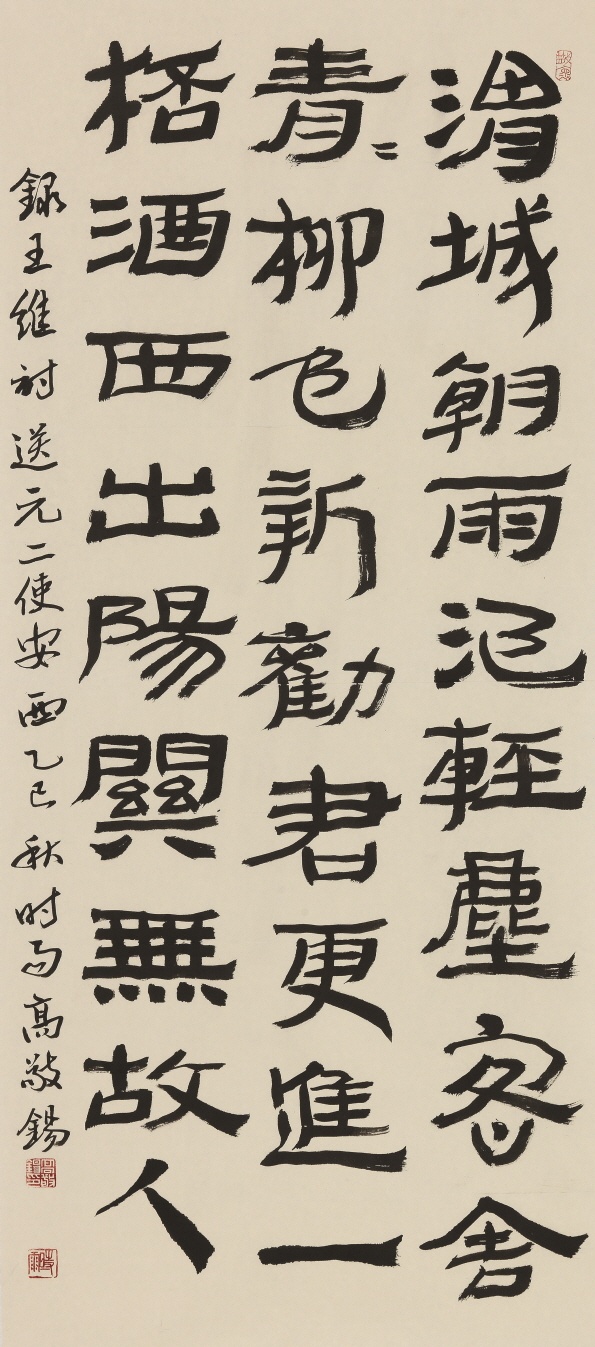 渭城朝雨浥輕塵客舍
青〻柳色新勸君更進一
桮酒西出陽關無故人
錄王維詩送元二使安西乙巳秋时雨高敬錫